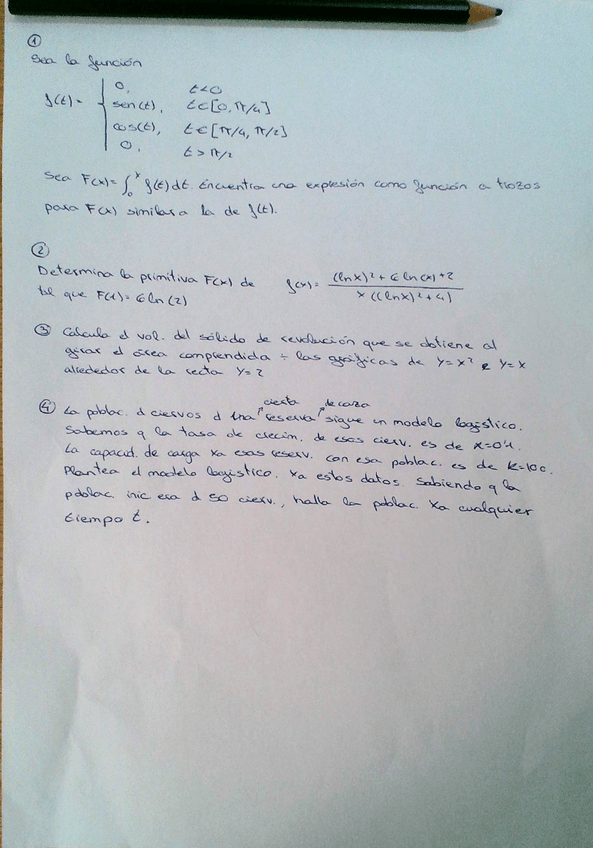 ①
Sea la función
f(t) = 0, t<0
sen(t), t∈[0, π/4]
cos(t), t∈[π/4, π/2]
0, t>π/2
Sea F(x)=∫₀ˣ f(t)dt. Encuentra una expresión como función a trozos
para F(x) similar a la de f(t).
②
Determina la primitiva F(x) de f(x) = ((lnx)²+6ln(x)+2) / (x((lnx)²+4))
tal que F(1)=6ln(2)
③ Calcula el vol. del sólido de revolución que se obtiene al
girar el área comprendida ÷ las gráficas de y=x² e y=x
alrededor de la recta y=2
④ La poblac. d ciervos d una cierta reserva de caza sigue un modelo logístico.
Sabemos q la tasa de crecim. de esos cierv. es de α=0'4.
La capacid. de carga xa esas reserv. con esa poblac. es de K=100.
Plantea el modelo logístico. xa estos datos. Sabiendo q la
poblac. inic era d 50 cierv., halla la poblac. xa cualquier
tiempo t.